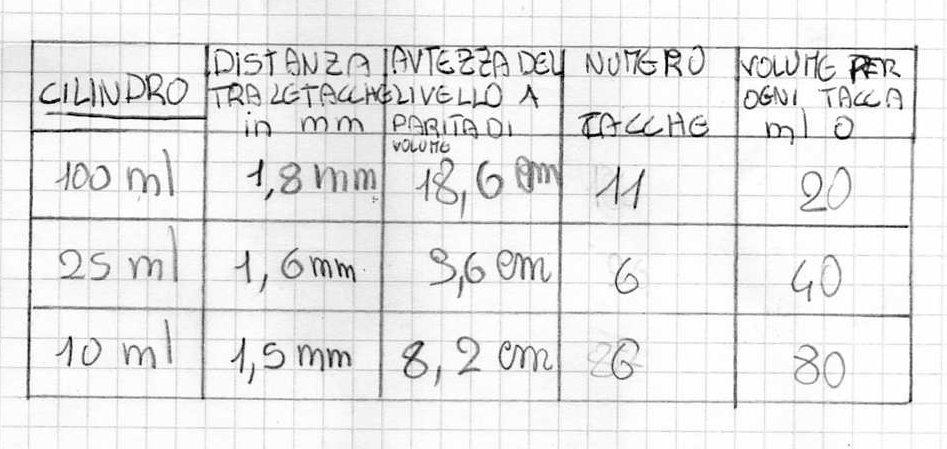 CILINDRO
DISTANZA
TRA LE TACCHE
in mm
ALTEZZA DEL
LIVELLO A
PARITA DI
VOLUME
NUMERO
TACCHE
VOLUME PER
OGNI TACCA
ml O
100 ml 1,8 mm 18,6 cm 11 20
25 ml 1,6 mm 9,6 cm 6 40
10 ml 1,5 mm 8,2 cm 26 80